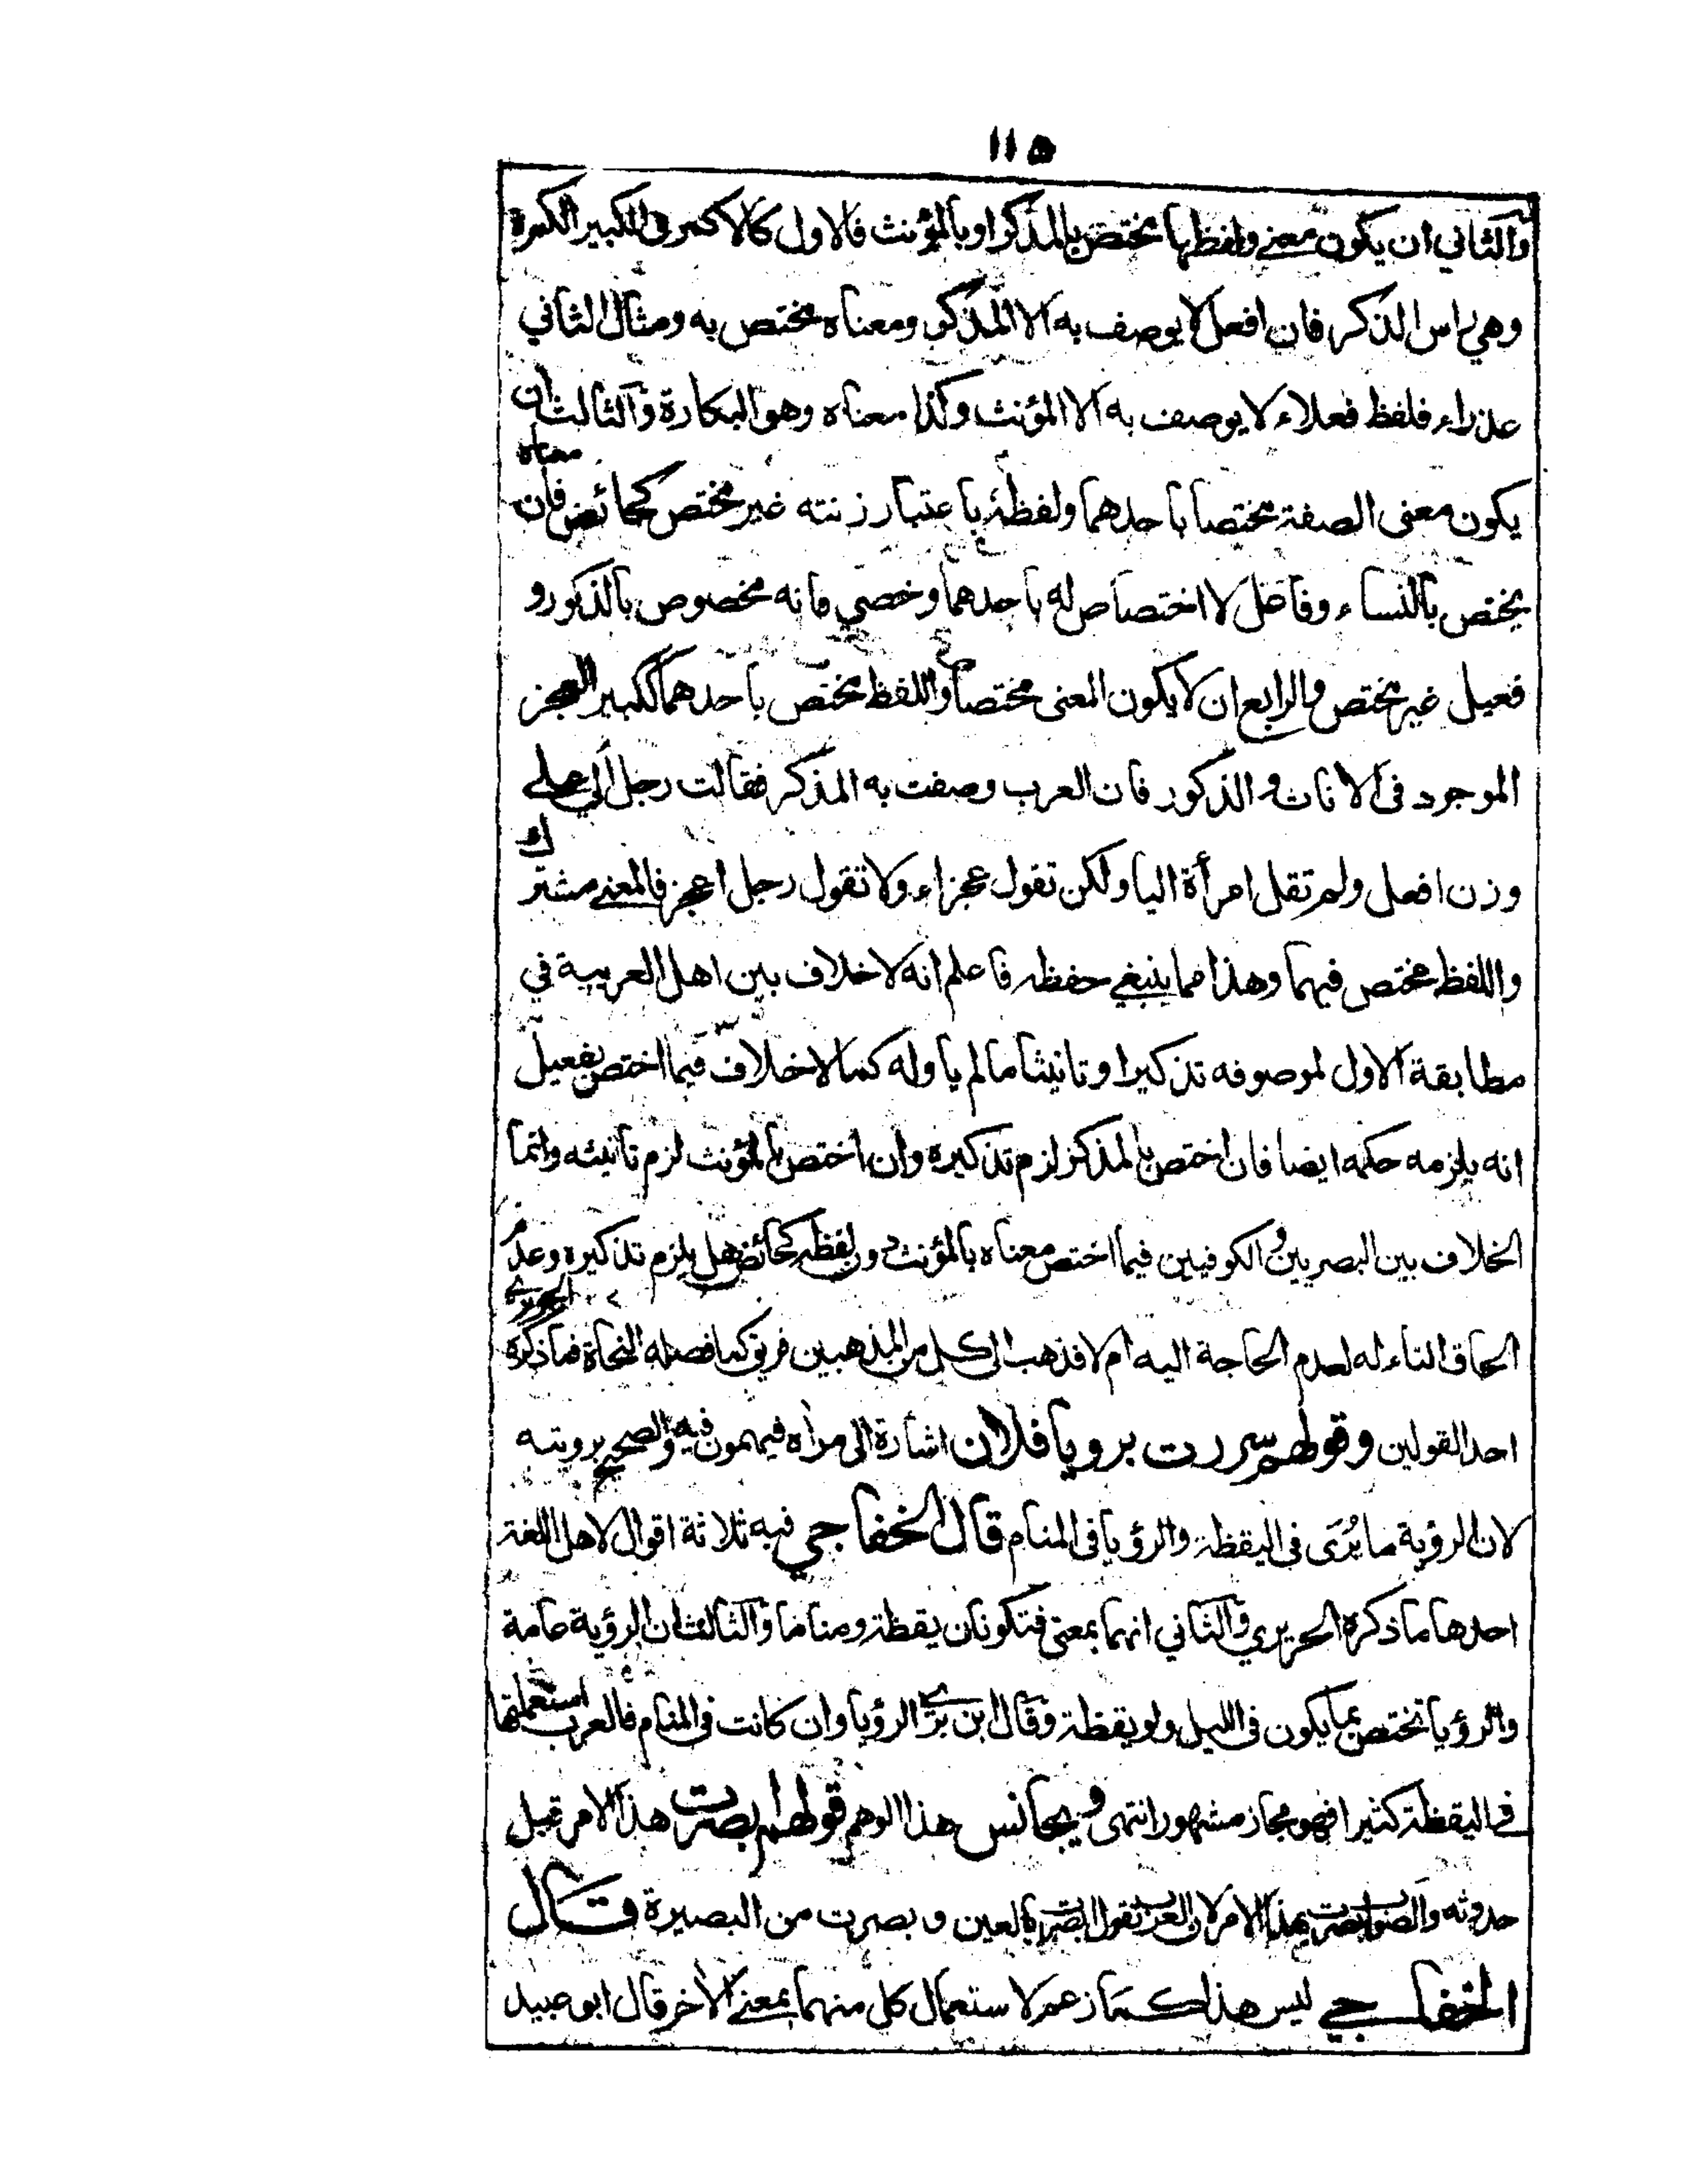 ١١٥
والثاني ان يكون معنى ولفظها يختص بالمذكر او بالمؤنث فالاول كالاكمر فى الكبير الكمرة
وهي راس الذكر فان افعل لا يوصف به الا المذكر ومعناه مختص به ومثال الثاني
عذراء فلفظ فعلاء لا يوصف به الا المؤنث وكذا معناه وهو البكارة والثالث ان
يكون معنى الصفة مختصا باحدهما ولفظه باعتبار زنته غير مختص كحائض فان معناه
يختص بالنساء وفاعل لا اختصاص له باحدهما وخصي فانه مخصوص بالذكور و
فعيل غير مختص والرابع ان لا يكون المعنى مختصا واللفظ مختص باحدهما ككبير العجز
الموجود فى الاناث والذكور فان العرب وصفت به المذكر فقالت رجل الى على
وزن افعل ولم تقل امرأة اليا ولكن تقول عجزاء ولا تقول رجل اعجز فالمعنى مشترك
واللفظ مختص فيهما وهذا مما ينبغي حفظه فاعلم انه لا خلاف بين اهل العربية في
مطابقة الاول لموصوفه تذكيرا وتانيثا ما لم ياوله كما لا خلاف فيما اختص بفعيل
انه يلزمه حكمه ايضا فان اختص بالمذكر لزم تذكيره وان اختص بالمؤنث لزم تانيثه وانما
الخلاف بين البصريين والكوفيين فيما اختص معناه بالمؤنث دون لفظه كحائض هل يلزم تذكيره وعدم
الحاق التاء له لعدم الحاجة اليه ام لا فذهب الى كل من المذهبين فريق كما فصله النحاة فما ذكره الحريرى
احد القولين وقولهم سررت برويا فلان اشارة الى مرآه فيهمون فيه والصحيح برويته
لان الرؤية ما يُرَى فى اليقظة والرؤيا فى المنام قال الخفاجي فيه ثلاثة اقوال لاهل اللغة
احدها ما ذكره الحريري والثاني انهما بمعنى فتكونان يقظة ومناما والثالث ان الرؤية عامة
والرؤيا تختص بما يكون فى الليل ولو يقظة وقال ابن برّى الرؤيا وان كانت فى المنام فالعرب استعملتها
فى اليقظة كثيرا فهو مجاز مشهور انتهى ويجانس هذا الوهم قولهم بصرت هذا الامر قبل
حدوثه والصواب بصرت بهذا الامر لان العرب تقول ابصرت بالعين وبصرت من البصيرة قال
الخفاجي ليس هذا كما زعم لاستعمال كل منهما بمعنى الآخر قال ابو عبيد